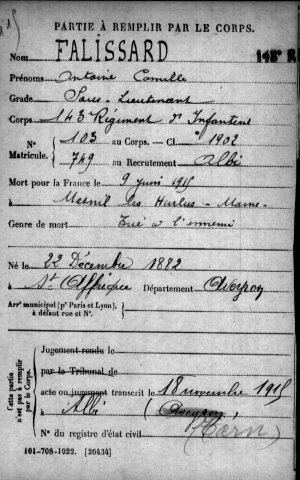 PARTIE À REMPLIR PAR LE CORPS.
Nom FALISSARD
Prénoms Antoine Camille
Grade Sous-Lieutenant
Corps 143e Régiment d'Infanterie
N° Matricule. 103 au Corps. — Cl. 1902
749 au Recrutement Albi
Mort pour la France le 9 Juin 1915
à Mesnil les Hurlus - Marne -
Genre de mort Tué à l'ennemi
Né le 22 Décembre 1882
à St Affrique Département Aveyron
Arrt municipal (pr Paris et Lyon),
à défaut rue et N°.
Cette partie n'est pas à remplir par le Corps.
Jugement rendu le
par le Tribunal de
acte ou jugement transcrit le 18 novembre 1915
à Albi (Aveyron)
(Tarn)
N° du registre d'état civil
101-708-1922. [26434]